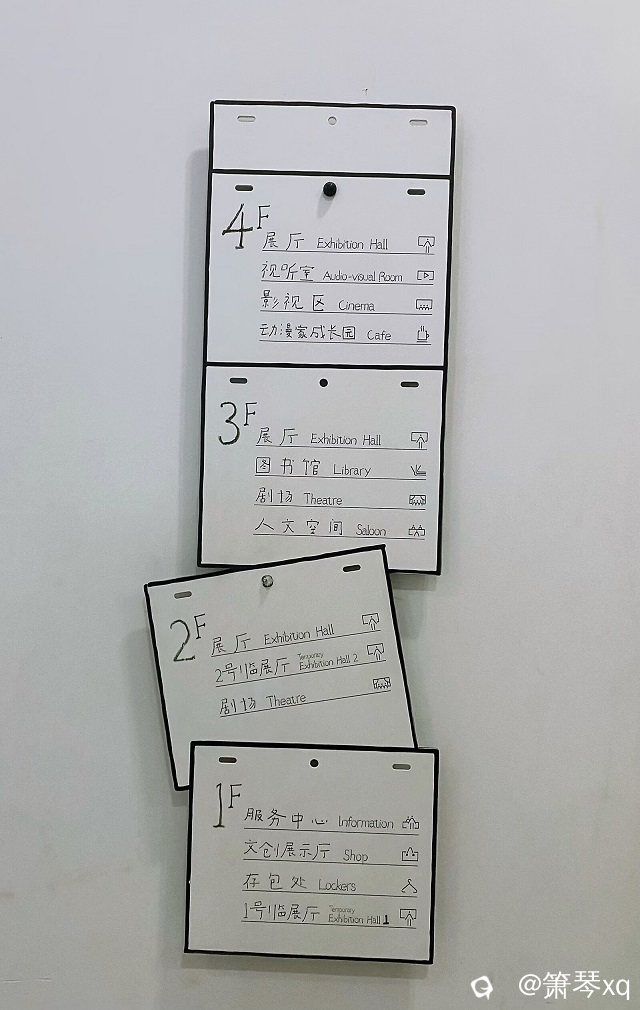 4F
展厅 Exhibition Hall
视听室 Audio-visual Room
影视区 Cinema
动漫家成长园 Cafe
3F
展厅 Exhibition Hall
图书馆 Library
剧场 Theatre
人文空间 Saloon
2F
展厅 Exhibition Hall
2号临展厅 Temporary Exhibition Hall 2
剧场 Theatre
1F
服务中心 Information
文创展示厅 Shop
存包处 Lockers
1号临展厅 Temporary Exhibition Hall 1
@箫琴xq